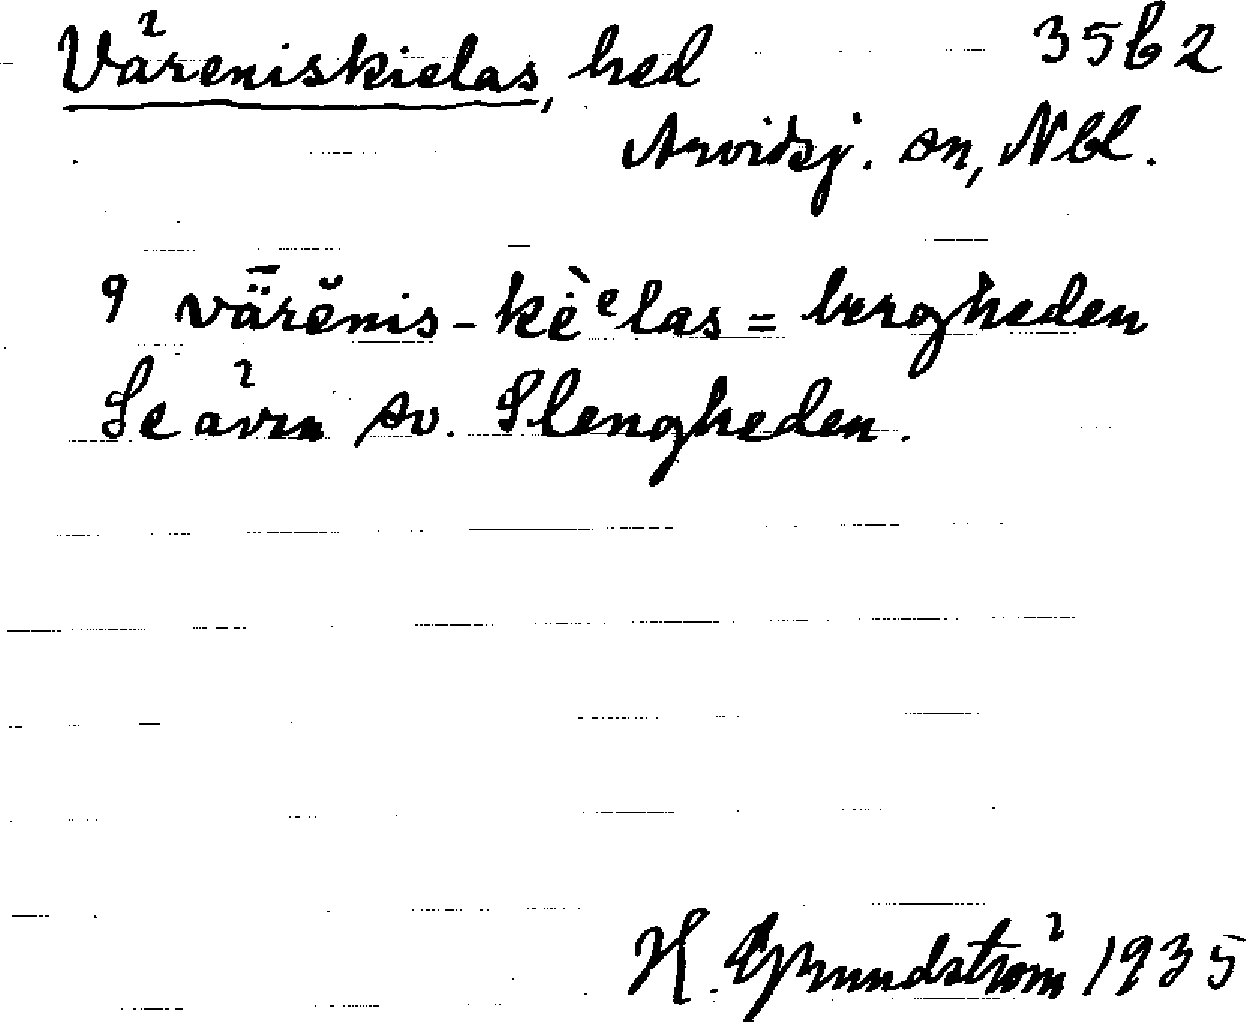 Väreniskielas, hed 35b2
Arvidsj. sn, Nbl.
9 vǟrĕnis-kèᵉlas = bergheden
Se även sv. Slengheden.
H. Grundström 1935